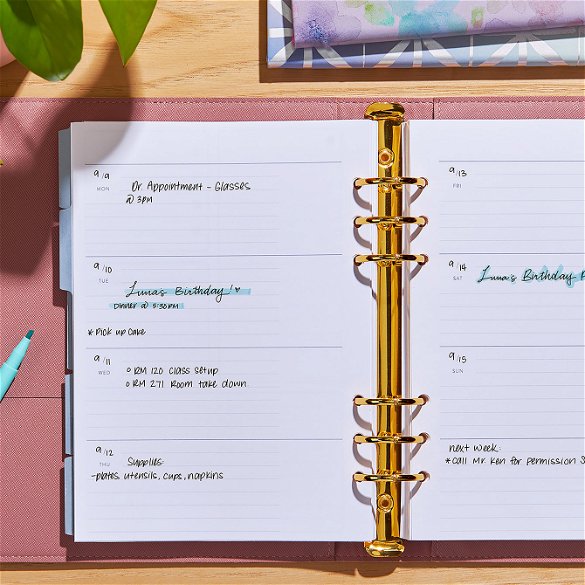 9/9
MON
Dr. Appointment - Glasses
@ 3PM
9/10
TUE
Luna's Birthday! ♥
Dinner @ 5:30PM
* Pick up cake
9/11
WED
o RM 120 Class setup
o RM 271 Room take down
9/12
THU
Supplies:
-plates, utensils, cups, napkins
9/13
FRI
9/14
SAT
Luna's Birthday
9/15
SUN
next week:
*Call Mr. Ken for permission